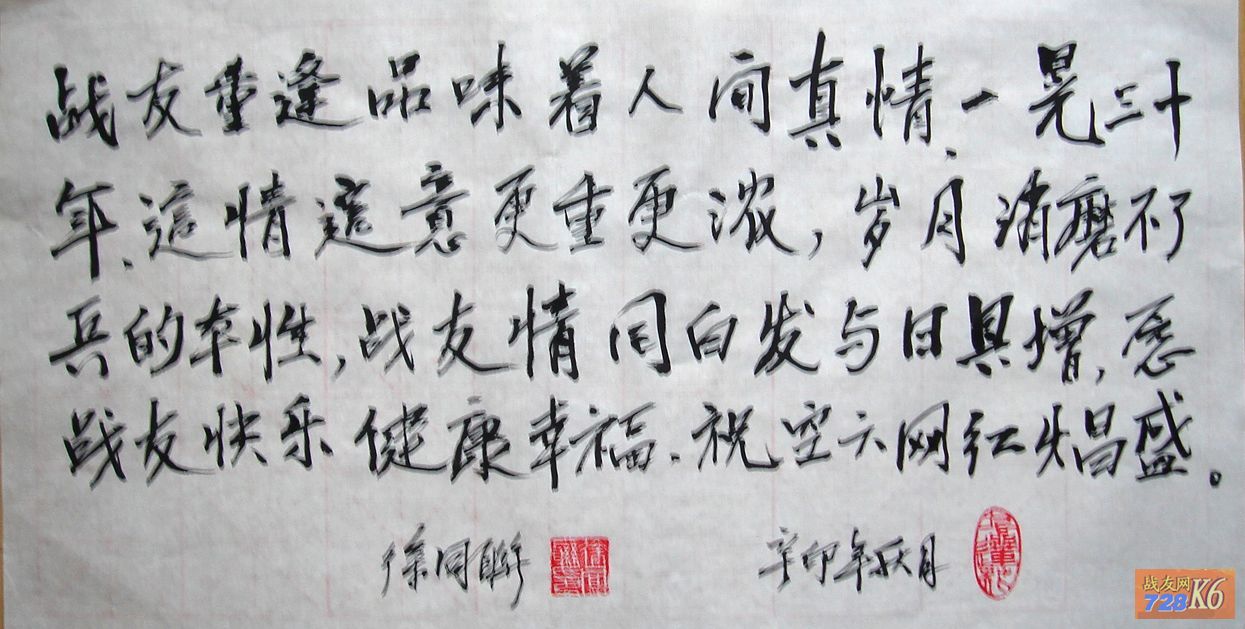 战友重逢品味着人间真情、一晃三十
年、這情這意更重更浓，岁月消磨不了
兵的本性，战友情同白发与日具增，愿
战友快乐健康幸福、祝空六网红火昌盛。
徐同聯
辛卯年 月
战友网
728 K6